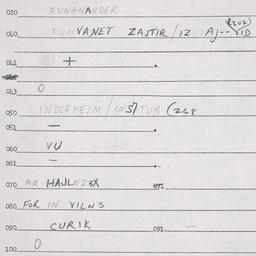 020 FUNANANDER
(302)
040 FUNVANET ZAJTIR/IZ AJ--YID
041 +
043 O
050 INDERHEIM/INS7TUB (268
051 —
060 VU
061 —
070 MR HAJLNZ3X 071
080 FOR IN VILN3
090 CURIK 091 —
100 O